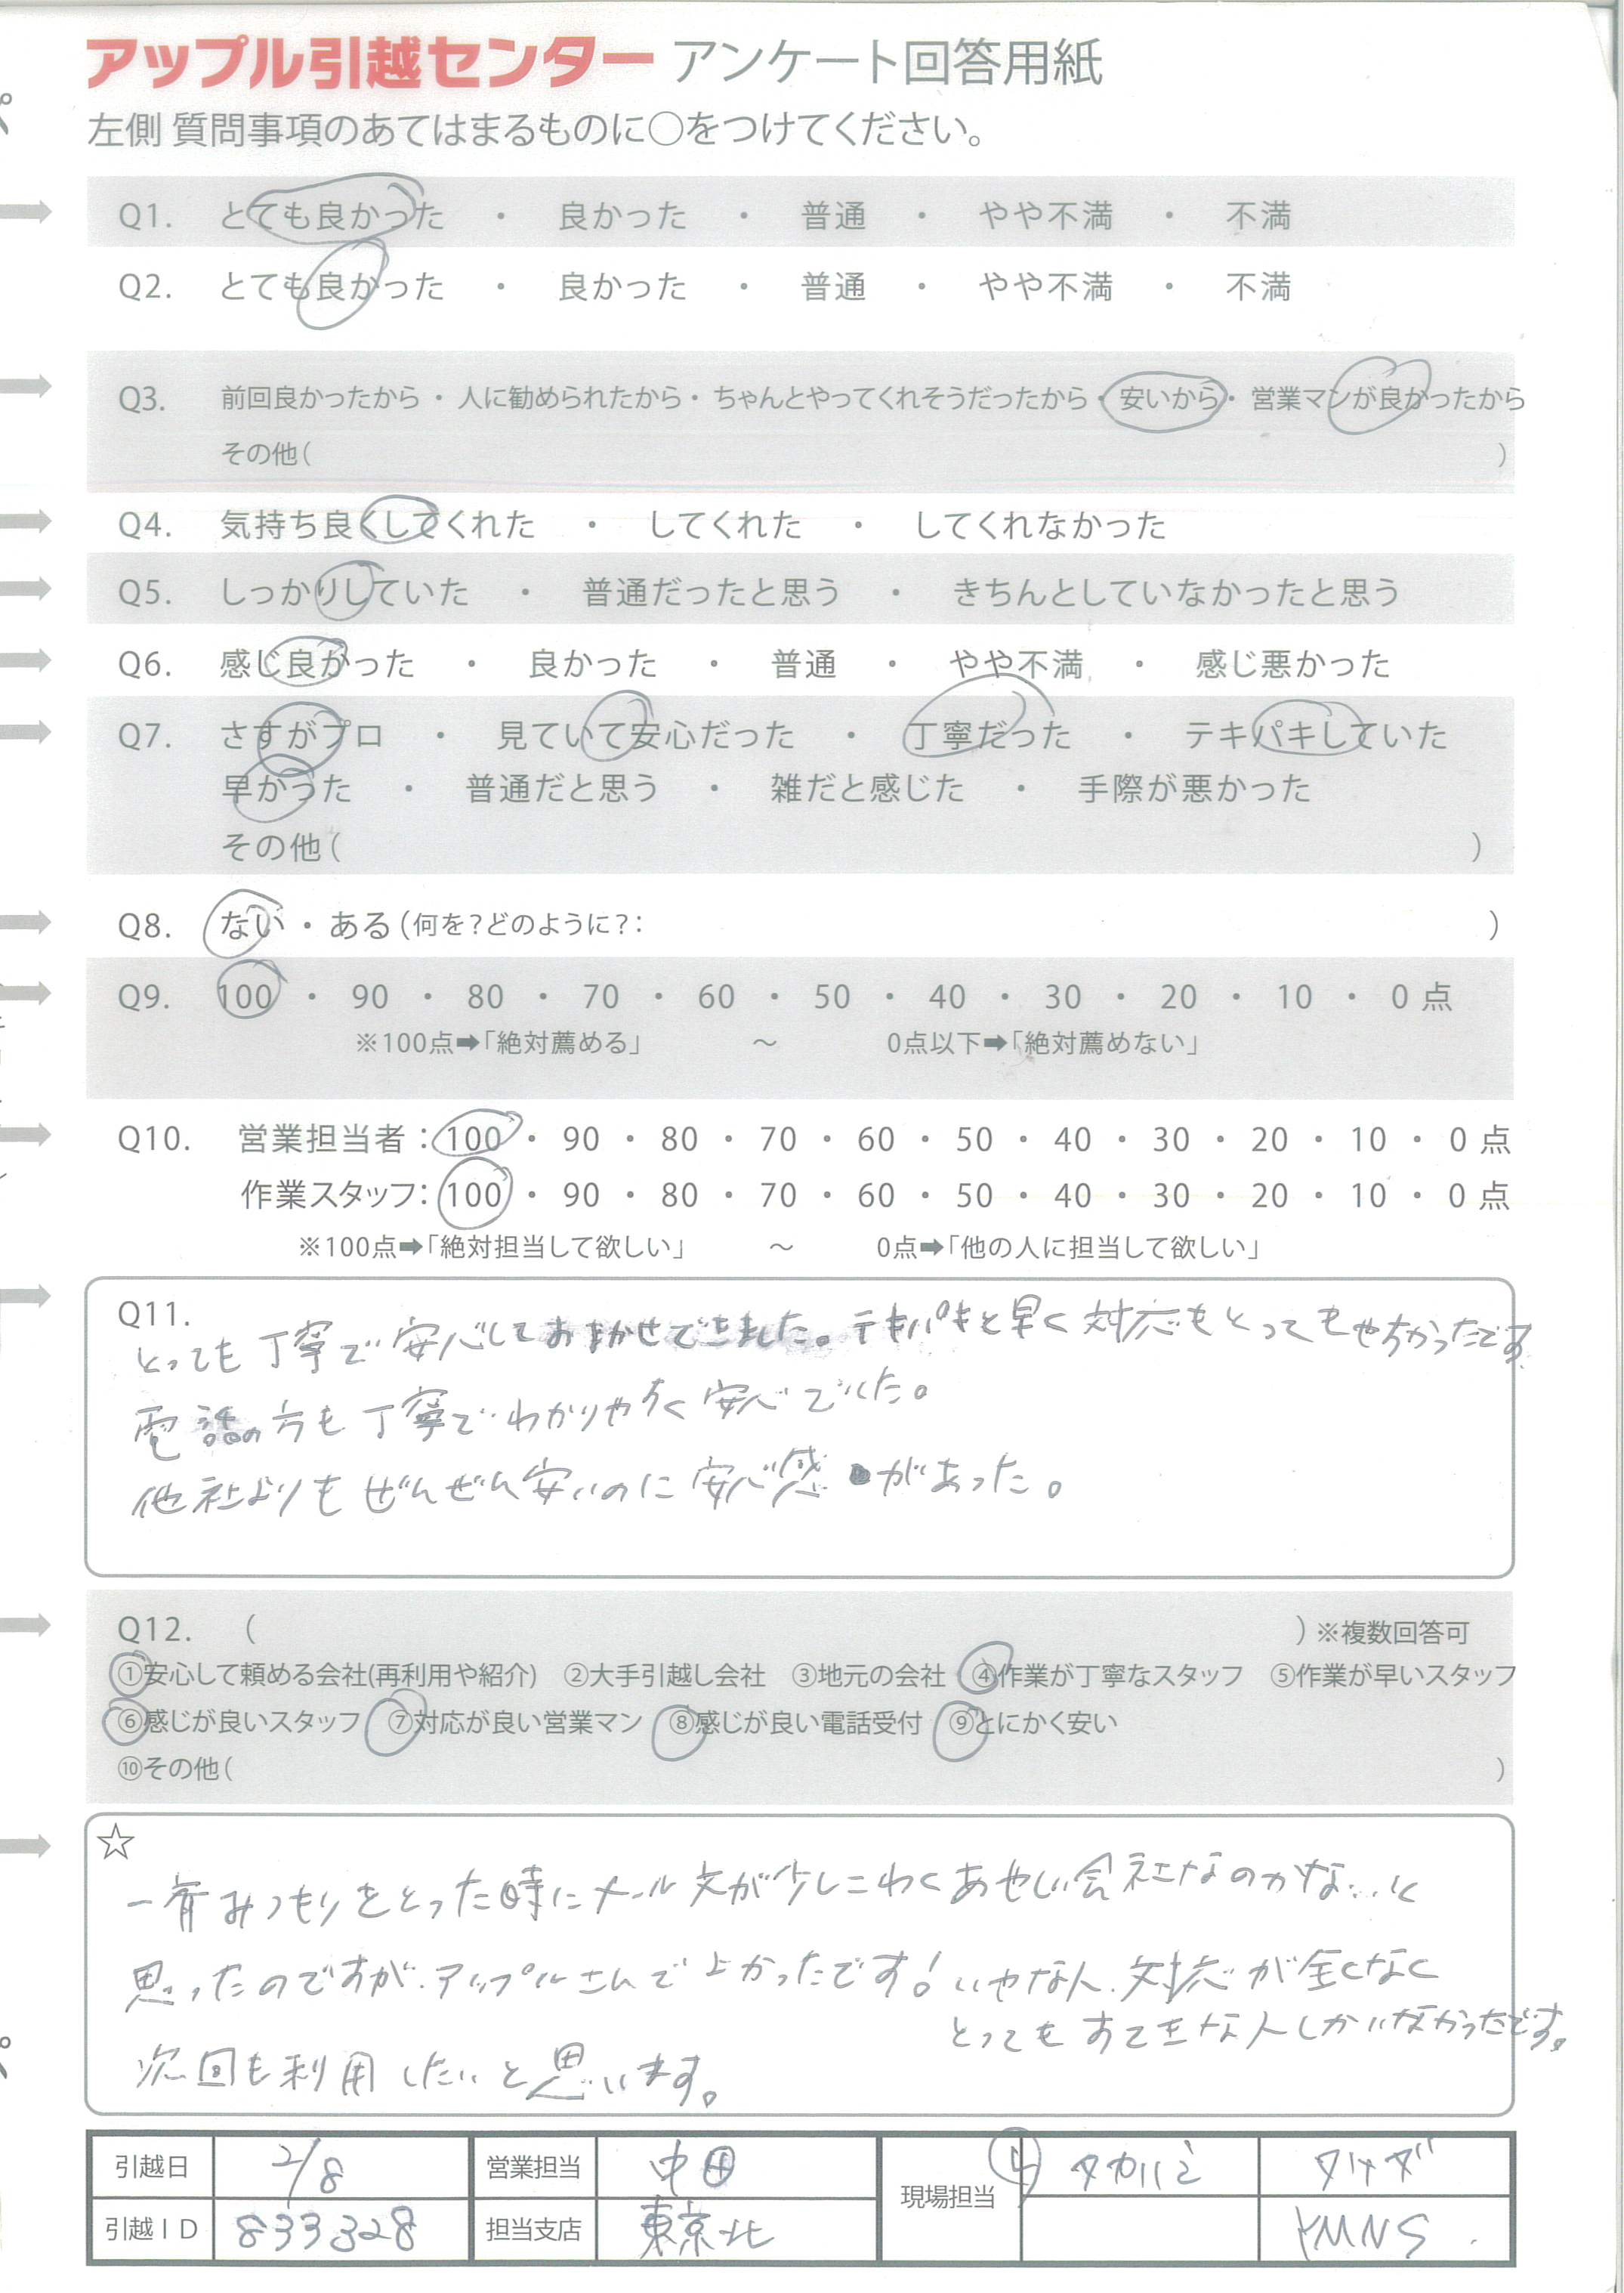 アップル引越センター アンケート回答用紙
左側 質問事項のあてはまるものに○をつけてください。
Q1. とても良かった ・ 良かった ・ 普通 ・ やや不満 ・ 不満
Q2. とても良かった ・ 良かった ・ 普通 ・ やや不満 ・ 不満
Q3. 前回良かったから ・ 人に勧められたから ・ ちゃんとやってくれそうだったから ・ 安いから ・ 営業マンが良かったから
その他( )
Q4. 気持ち良くしてくれた ・ してくれた ・ してくれなかった
Q5. しっかりしていた ・ 普通だったと思う ・ きちんとしていなかったと思う
Q6. 感じ良かった ・ 良かった ・ 普通 ・ やや不満 ・ 感じ悪かった
Q7. さすがプロ ・ 見ていて安心だった ・ 丁寧だった ・ テキパキしていた
早かった ・ 普通だと思う ・ 雑だと感じた ・ 手際が悪かった
その他( )
Q8. ない ・ ある (何を?どのように?: )
Q9. 100 ・ 90 ・ 80 ・ 70 ・ 60 ・ 50 ・ 40 ・ 30 ・ 20 ・ 10 ・ 0 点
※100点➡「絶対薦める」 ～ 0点以下➡「絶対薦めない」
Q10. 営業担当者:100 ・ 90 ・ 80 ・ 70 ・ 60 ・ 50 ・ 40 ・ 30 ・ 20 ・ 10 ・ 0 点
作業スタッフ:100 ・ 90 ・ 80 ・ 70 ・ 60 ・ 50 ・ 40 ・ 30 ・ 20 ・ 10 ・ 0 点
※100点➡「絶対担当して欲しい」 ～ 0点➡「他の人に担当して欲しい」
Q11.
とっても丁寧で安心しておまかせできました。テキパキと早く対応もとってもよかったです
電話の方も丁寧でわかりやすく安心でした。
他社よりもぜんぜん安いのに安心感があった。
Q12. ( ) ※複数回答可
①安心して頼める会社(再利用や紹介) ②大手引越し会社 ③地元の会社 ④作業が丁寧なスタッフ ⑤作業が早いスタッフ
⑥感じが良いスタッフ ⑦対応が良い営業マン ⑧感じが良い電話受付 ⑨とにかく安い
⑩その他( )
☆
一斉みつもりをとった時にメール文が少しこわくあやしい会社なのかな…と
思ったのですが、アップルさんでよかったです! いやな人、対応が全くなく
とってもすてきな人しかいなかったです。
次回も利用したいと思います。
引越日 2/8 営業担当 中田 現場担当 タカハシ
引越ID 833328 担当支店 東京北